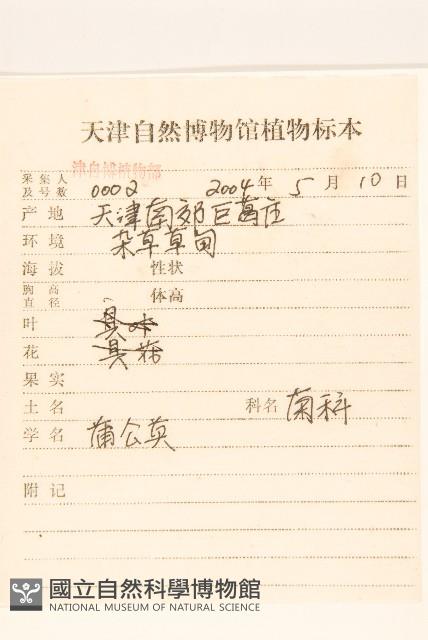 天津自然博物馆植物标本
津自然博物館植物部
采集人及号数 0002 2004年 5月 10日
产地 天津南郊巨葛庄
环境 杂草草甸
海拔 性状
胸高直径 体高
叶 具叶
花 具花
果实
土名 科名 菊科
学名 蒲公英
附记
國立自然科學博物館
NATIONAL MUSEUM OF NATURAL SCIENCE